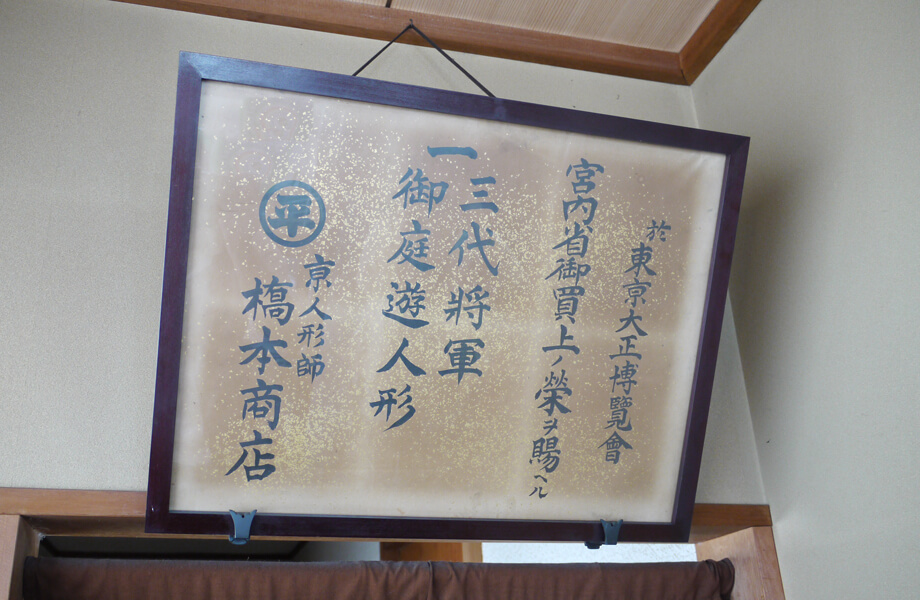 於東京大正博覽會
宮内省御買上ノ榮ヲ賜ヘル
一三代將軍
御庭遊人形
平
京人形師
橋本商店